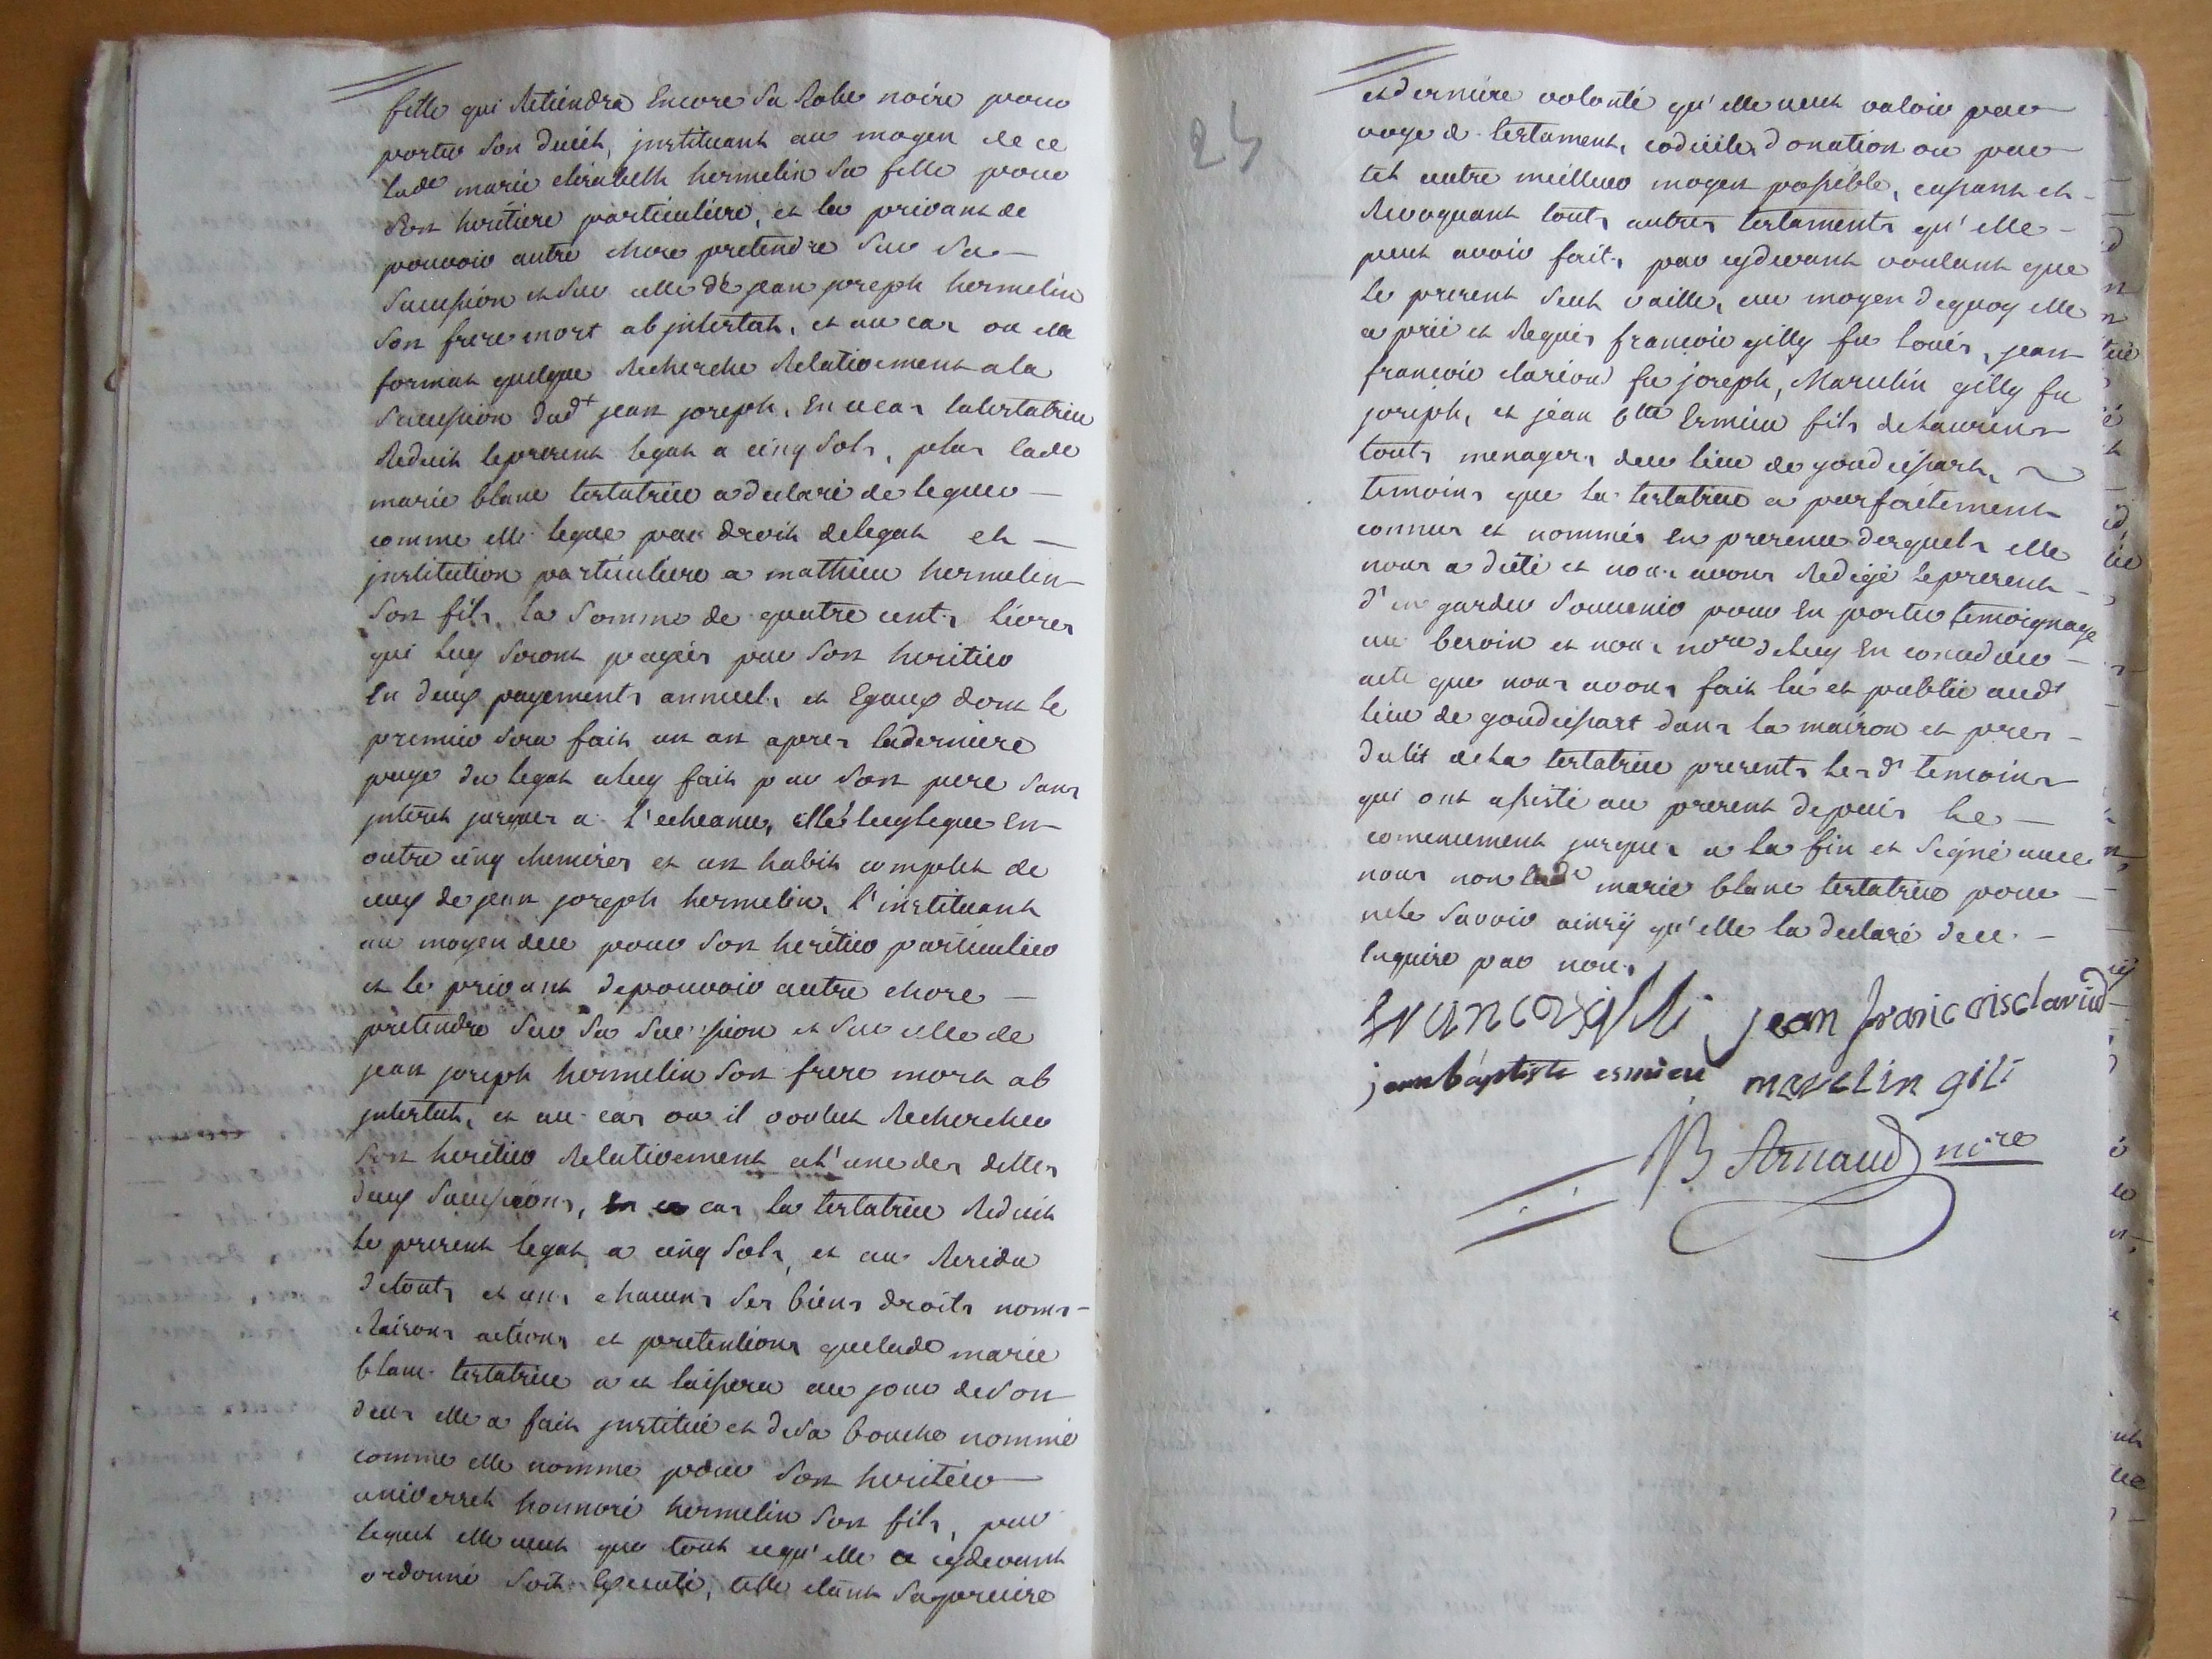 fille qui Retiendra Encore Sa Robe noire pour
porter Son Dueil, jnstituant au moyen de ce
lade marie elisabeth hermelin Sa fille pour
Son heritiere particuliere, et la privant de
pouvoir autre chose pretendre Sur Sa –
Succession et Sur celle de jean joseph hermelin
Son frere mort ab jntestat, et au cas ou elle
format quelque Recherche Relativement a la
Succession dudt jean joseph, En ce cas la testatrice
Reduit le present legat a cinq Sols, plus lade
marie blanc testatrice a declaré de leguer –
comme elle legue par droit de legat et –
jnstitution particuliere a mathieu hermelin
Son fils, la Somme de quatre cents livres
qui luy Seront payés par Son heritier
En deux payements annuels et Egaux dont le
premier Sera fait un an apres la derniere
paye du legat a luy fait par Son pere Sans
jnterêt jusques a l'echeance, elle luy legue En
outre cinq chemises et un habit complet de
ceux de jean joseph hermelin, l'instituant
au moyen de ce pour Son heritier particulier
et le privant de pouvoir autre chose –
pretendre Sur Sa Succession et Sur celle de
jean joseph hermelin Son frere mort ab
jntestat, et au cas ou il voulut Rechercher
Son heritier Relativement a l'une des dittes
deux Successions, en ce cas la testatrice Reduit
le present legat a cinq Sols, et au Residu
de touts et uns chacuns Ses biens droits noms –
Raisons actions et pretentions que lade marie
blanc testatrice a et laissera au jour de Son
deces elle a fait jnstitué et de Sa bouche nommé
comme elle nomme pour Son heritier
universel honnoré hermelin Son fils, par
lequel elle veut que tout ce qu'elle a cydevant
ordonné Soit Executé, telle etant Sa premiere
24
et derniere volonté qu'elle veut valoir par
voye de testament, codicile, donation ou par
tel autre meilleur moyen possible, cassant et –
Revoquant touts autres testaments qu'elle –
peut avoir faits par cydevant voulant que
le present Seul vaille, au moyen dequoy elle
a prié et Requis francois gilly fu louis, jean
francois clariond fu joseph, Marcelin gilly fu
joseph, et jean btte Ermieu fils de Laurens
touts menagers de ce lieu de goudeissart,
temoins que la testatrice a parfaitement
connus et nommés En presence desquels elle
nous a dicté et nous avons Redigé le present –
d'en garder Souvenir pour En porter temoignage
au besoin et nous nore de luy En conceder –
acte que nous avons fait lu et publié audt
lieu de goudeissart dans la maison et pres –
du lit de la testatrice presents les dt temoins
qui ont assisté au present depuis le –
comencement jusques a la fin et Signé avec
nous non lade marie blanc testatrice pour –
ne le Savoir ainsÿ qu'elle la declaré de ce –
Enquise par nous
francois gilli jean francois clariud
jean baptiste esmieu marselin gili
B Arnaud nore